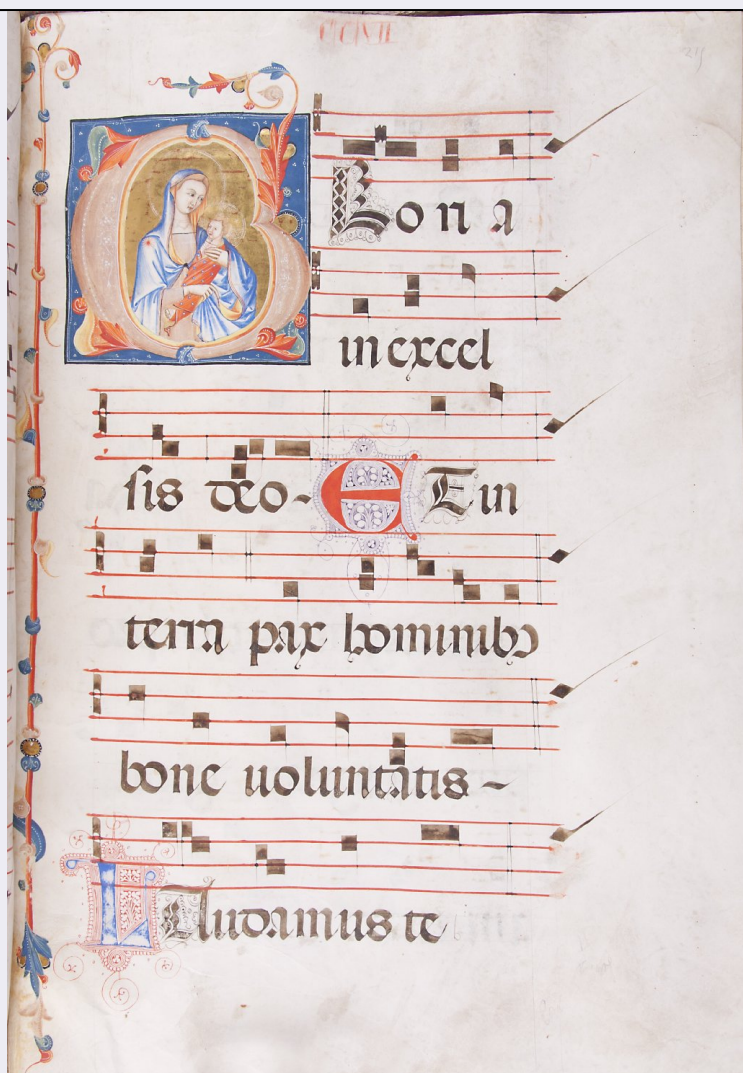 GLoria
in excel
sis deo-ET in
terra pax hominibꝰ
bone uoluntatis-
LAudamus te